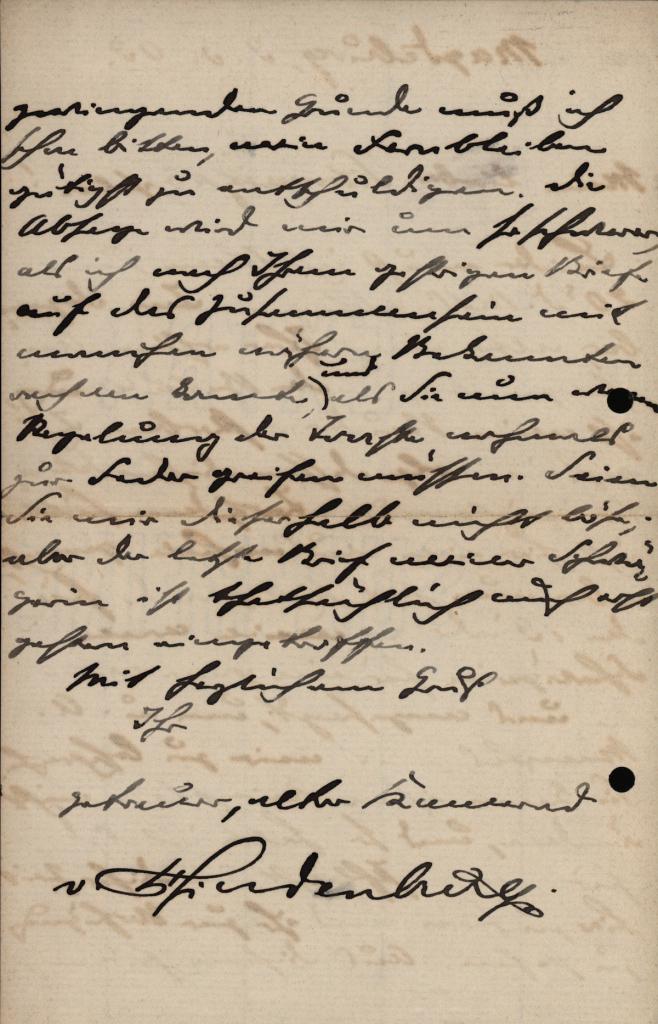 zwingenden Gründe muß ich
schon bitten, mein Fernbleiben
gütigst zu entschuldigen. Die
Absage wird mir um so schwerer,
als ich nach Ihrem gestrigen Briefe
auf das Zusammensein mit
manchen näheren Bekannten
rechnen konnte, und als Sie nun
Regelung der Toaste nochmals
zur Feder greifen müssen. Seien
Sie mir dieserhalb nicht böse,
aber der letzte Brief meiner Schwä-
gerin ist thatsächlich auch erst
gestern eingetroffen.
Mit herzlichem Gruß
Ihr
getreuer, alter Kamerad
v Hindenburg.